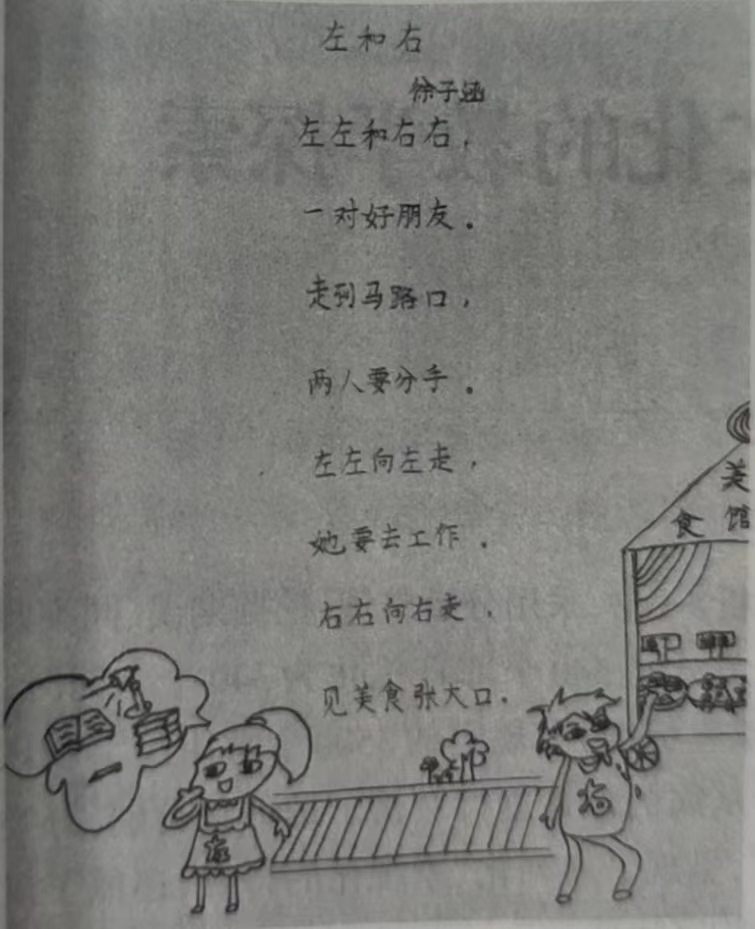 左和右
徐子涵
左左和右右，
一对好朋友。
走到马路口，
两人要分手。
左左向左走，
她要去工作。
右右向右走，
见美食张大口。
美
食馆
左
右